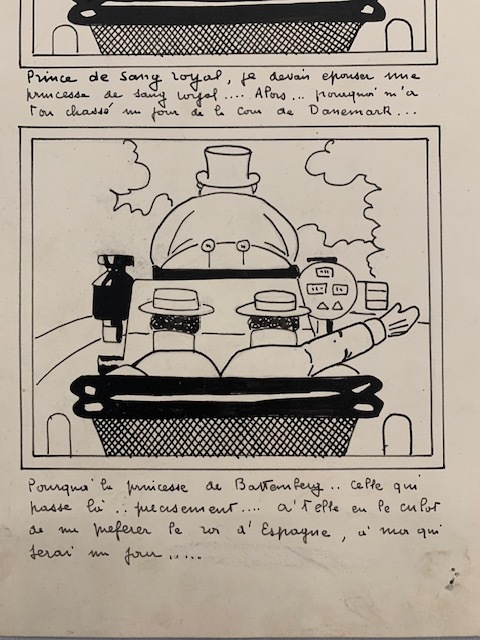 Prince de Sang royal, je devais epouser une
princesse de sang royal.... Alors... pourquoi m'a
t'on chassé un jour de la Cour de Danemark...
Pourquoi la princesse de Battemberg.. celle qui
passe là.. precisement.... a t'elle eu le culot
de me preferer le roi d'Espagne, à moi qui
serai un jour.....